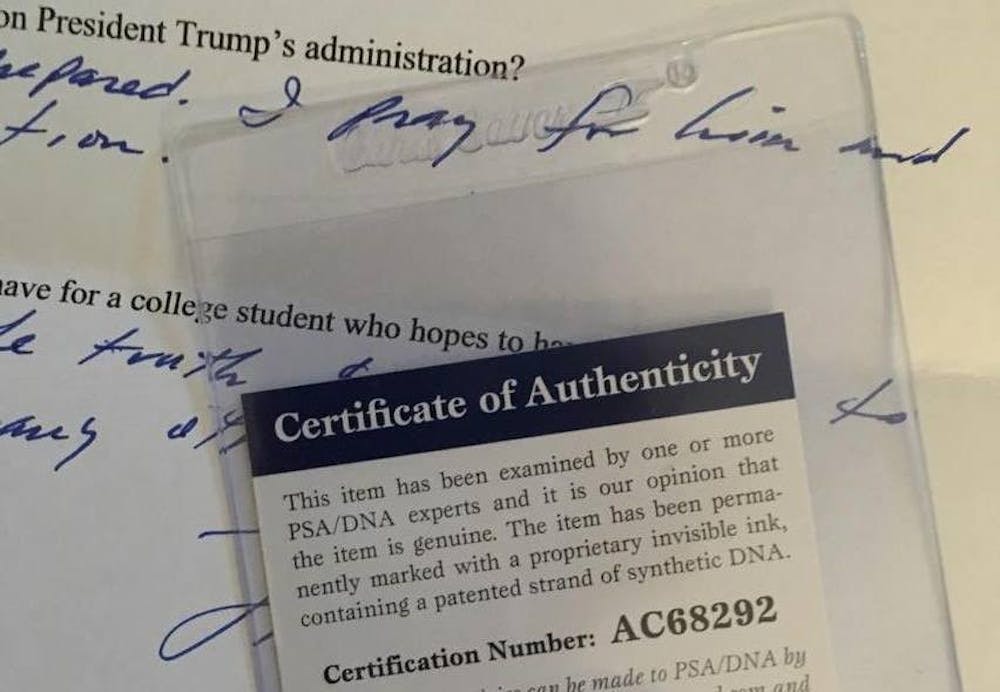 on President Trump's administration?
prepared. I pray for him and
tion.
have for a college student who hopes to
truth
to
Certificate of Authenticity
This item has been examined by one or more
PSA/DNA experts and it is our opinion that
the item is genuine. The item has been perma-
nently marked with a proprietary invisible ink,
containing a patented strand of synthetic DNA.
Certification Number: AC68292
can be made to PSA/DNA by
and